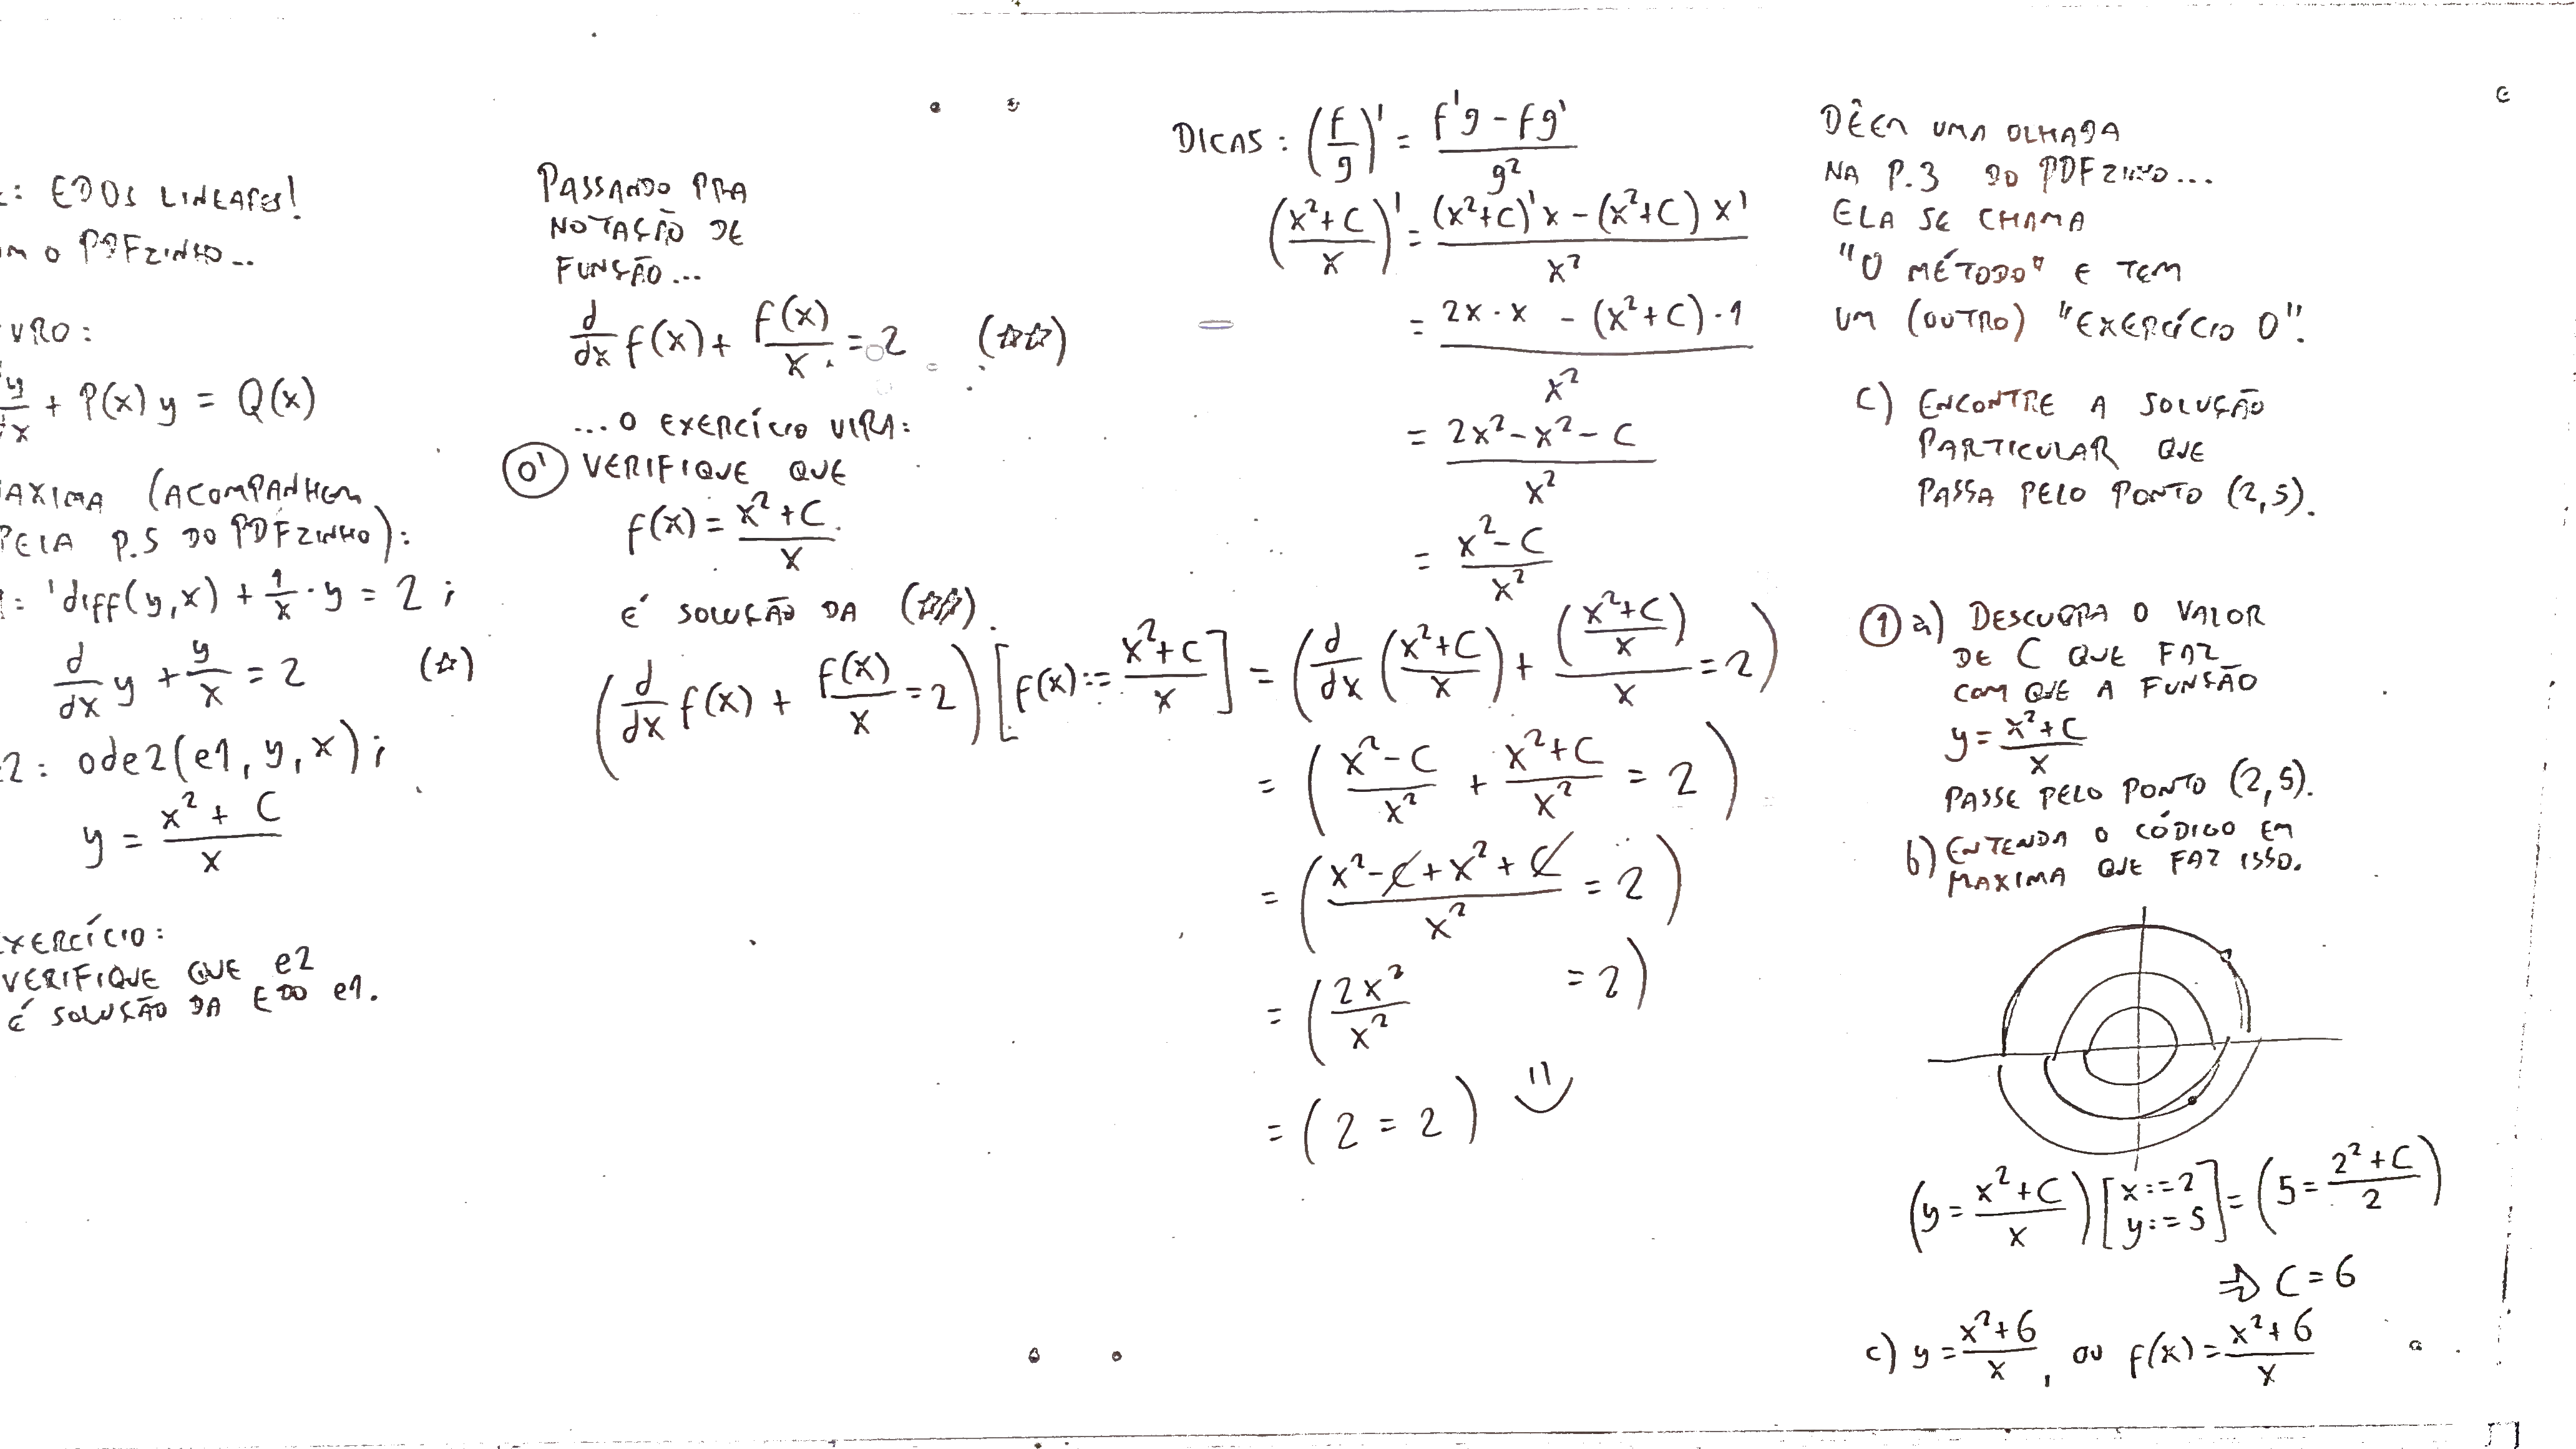 : EDOS LINEARES!
M O PDFZINHO...
VRO:
y/dx + P(x) y = Q(x)
AXIMA (ACOMPANHEM
PELA P.5 DO PDFZINHO):
1: 'diff(y,x) + 1/x · y = 2 ;
d/dx y + y/x = 2 (☆)
2: ode2(e1, y, x) ;
y = (x² + C)/x
XERCÍCIO:
VERIFIQUE QUE e2
É SOLUÇÃO DA EDO e1.
PASSANDO PRA
NOTAÇÃO DE
FUNÇÃO...
d/dx f(x) + f(x)/x = 2 (☆☆)
...O EXERCÍCIO VIRA:
0' VERIFIQUE QUE
f(x) = (x² + C)/x
É SOLUÇÃO DA (☆☆).
DICAS: (f/g)' = (f'g - fg')/g²
((x²+C)/x)' = ((x²+C)'x - (x²+C) x')/x²
= (2x · x - (x²+C) · 1)/x²
= (2x² - x² - C)/x²
= (x² - C)/x²
(d/dx f(x) + f(x)/x = 2) [f(x) := (x²+C)/x] = (d/dx ((x²+C)/x) + ((x²+C)/x)/x = 2)
= ((x² - C)/x² + (x²+C)/x² = 2)
= ((x² - C + x² + C)/x² = 2)
= (2x²/x² = 2)
= (2 = 2)
DÊEM UMA OLHADA
NA P.3 DO PDFZINHO...
ELA SE CHAMA
"O MÉTODO" E TEM
UM (OUTRO) "EXERCÍCIO 0".
C) ENCONTRE A SOLUÇÃO
PARTICULAR QUE
PASSA PELO PONTO (2,5).
1 a) DESCUBRA O VALOR
DE C QUE FAZ
COM QUE A FUNÇÃO
y = (x²+C)/x
PASSE PELO PONTO (2,5).
b) ENTENDA O CÓDIGO EM
MAXIMA QUE FAZ ISSO.
(y = (x²+C)/x) [x:=2 y:=5] = (5 = (2²+C)/2)
⇒ C = 6
c) y = (x²+6)/x, ou f(x) = (x²+6)/x